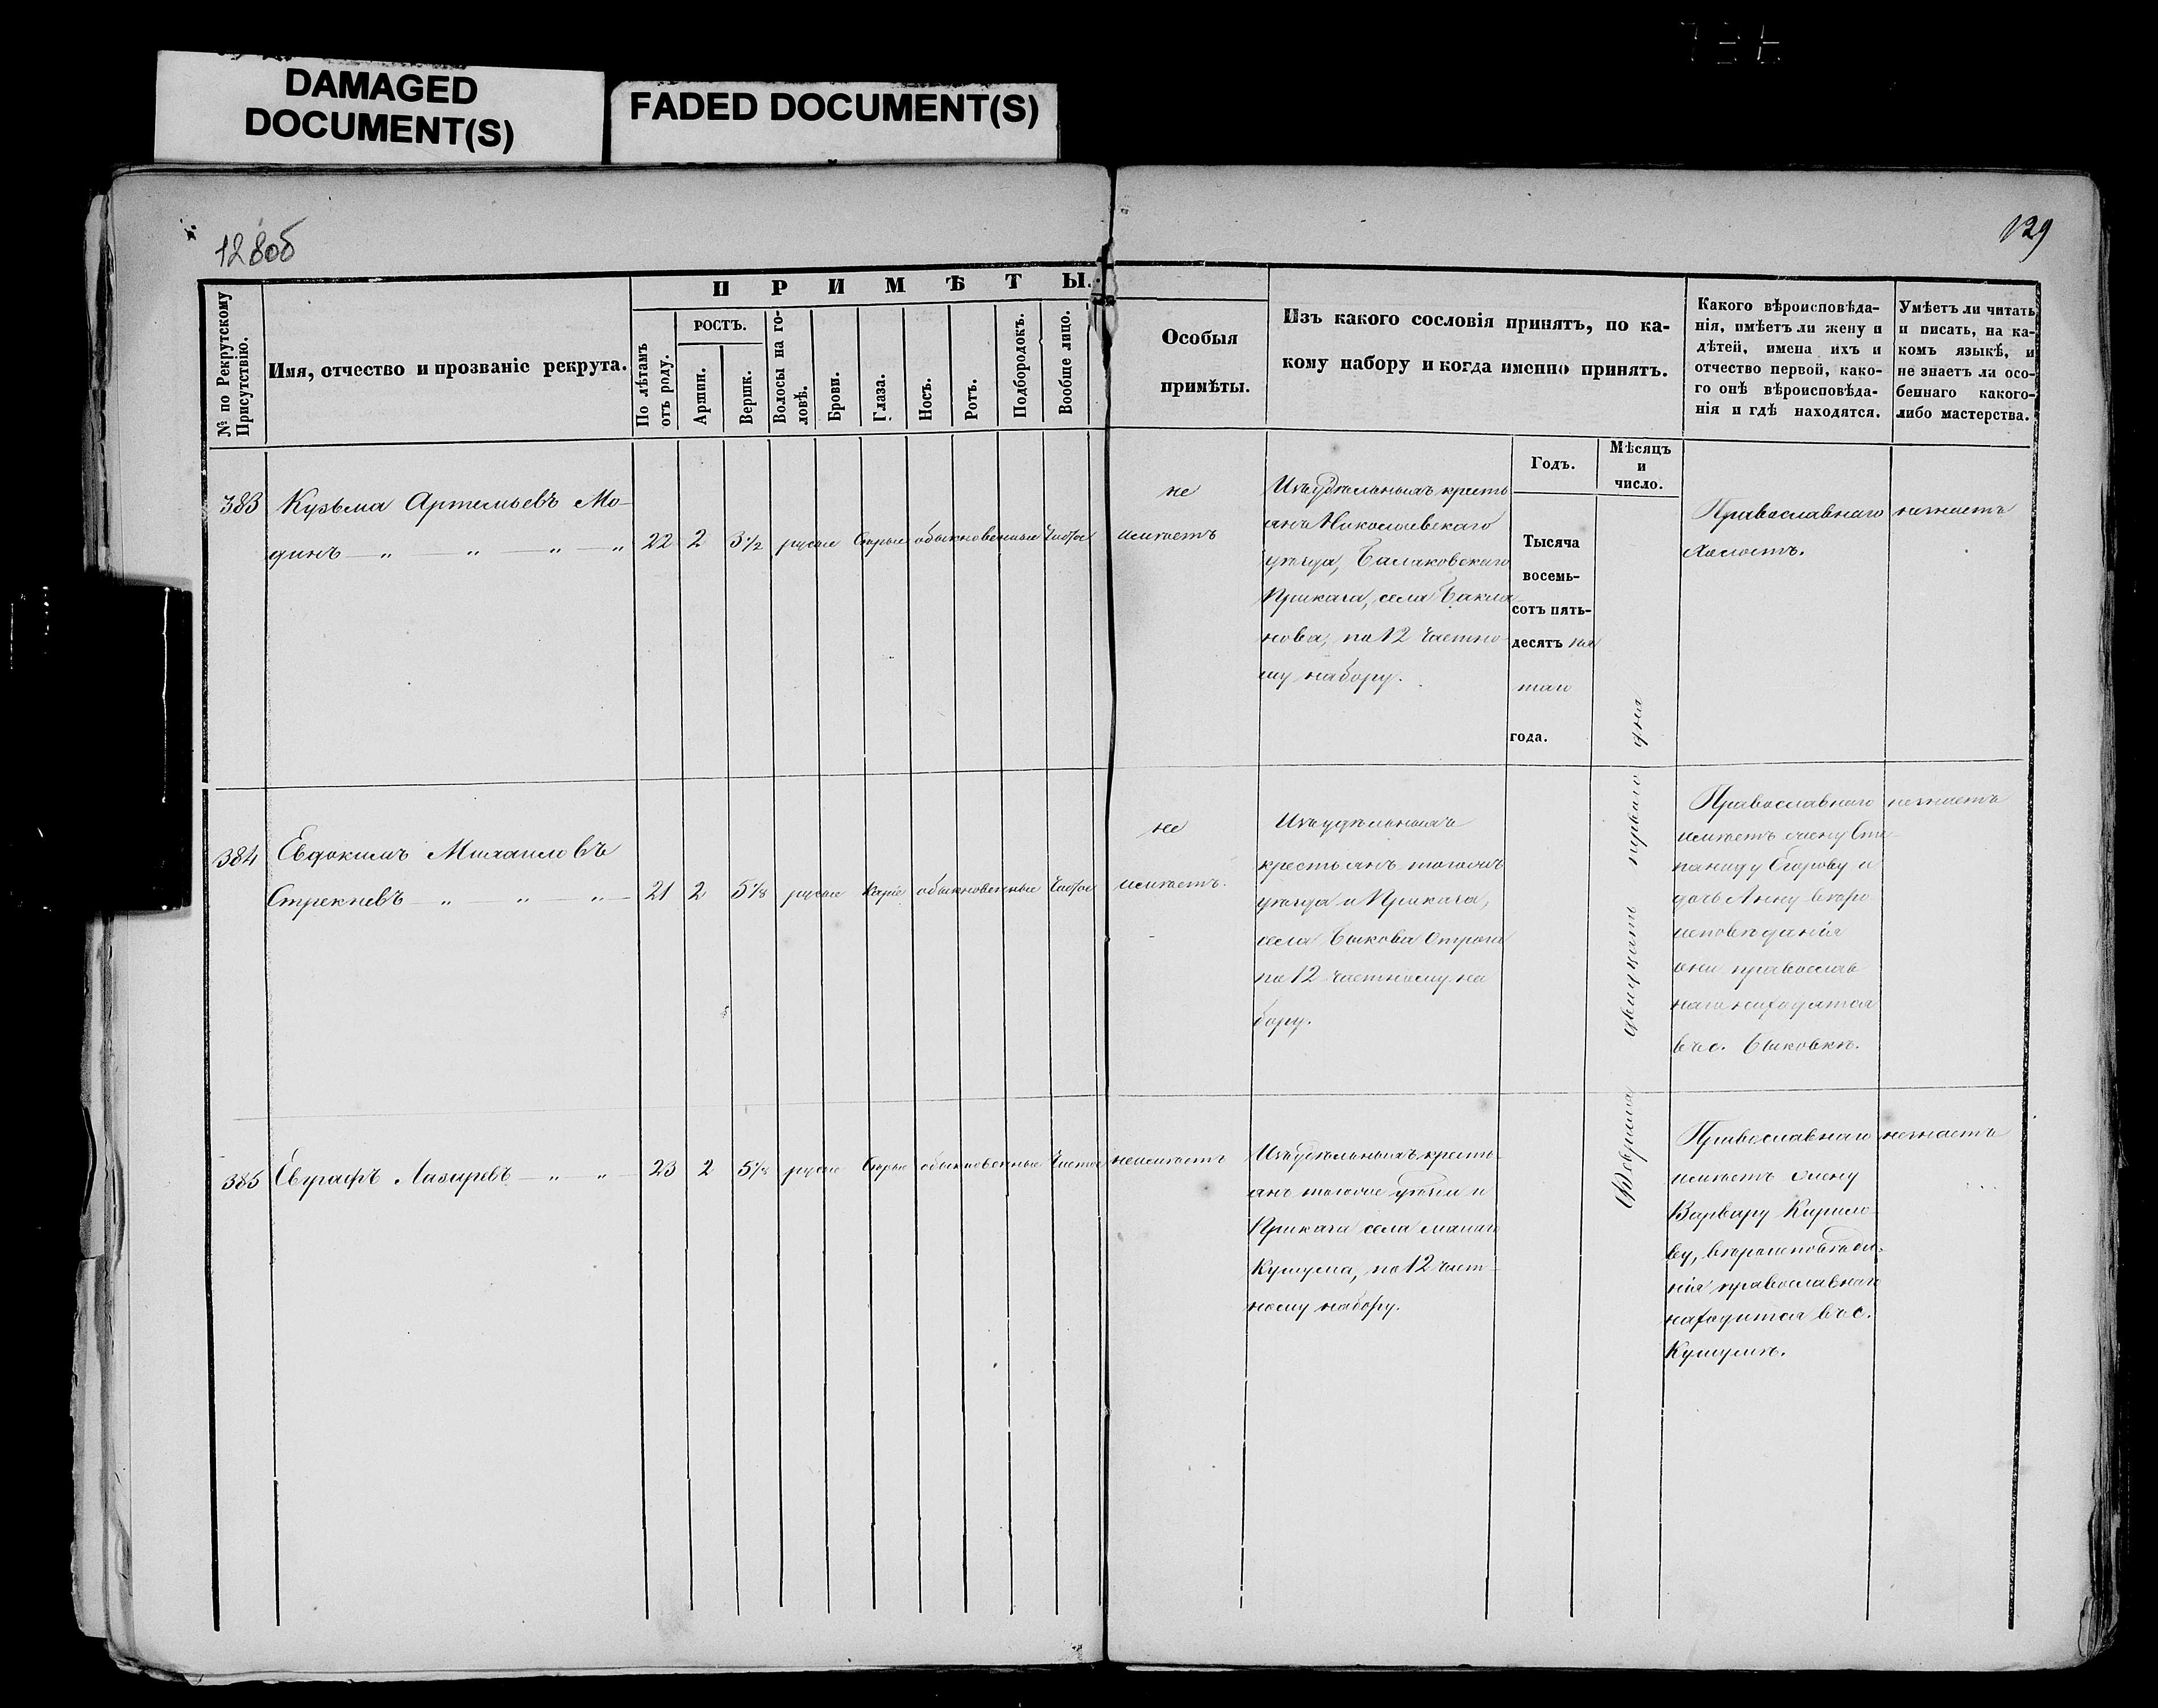 DAMAGED
DOCUMENT(S)
FADED DOCUMENT(S)
128об
129
№ по Рекрутскому
Присутствію.
Имя, отчество и прозваніе рекрута.
ПРИМѢТЫ.
По лѣтамъ
отъ роду.
РОСТЪ.
Аршин.
Вершк.
Волосы на го-
ловѣ.
Брови.
Глаза.
Носъ.
Ротъ.
Подбородокъ.
Вообще лицо.
Особыя
примѣты.
Изъ какого сословія принятъ, по ка-
кому набору и когда именно принятъ.
Какого вѣроисповѣда-
нія, имѣетъ ли жену и
дѣтей, имена ихъ и
отчество первой, како-
го онѣ вѣроисповѣда-
нія и гдѣ находятся.
Умѣетъ ли читать
и писать, на ка-
комъ языкѣ, и
не знаетъ ли осо-
беннаго какого-
либо мастерства.
Годъ.
Мѣсяцъ
и
число.
383 Кузьма Артемьевъ Мо-
динъ — „ „ — „ — „
22 2 3½ русые Сѣрые обыкновенные Чистое
не
имѣетъ
Изъ удѣльныхъ кресть
янъ Николаевскаго
уѣзда, Балаковскаго
Приказа, села Бакла-
нова, по 12 Частно-
му набору.
Тысяча
восемь-
сотъ пять-
десятъ пя
таго
года.
Февраля двадцать перваго дня
Православнаго
Холостъ.
незнаетъ
384 Евдокимъ Михаиловъ
— „ — „ — „ —
21 2 5⅛ русые Каріе обыкновенные Чистое
не
имѣетъ.
Изъ удѣльныхъ
крестьянъ тогожъ
уѣзда и Приказа,
села Быкова Отрога
по 12 частному на
бору.
Православнаго
имѣетъ жену Сте-
паниду Егорову и
дочь Анну вѣро
исповѣданія
они православ
наго находятся
въ с. Быковкѣ.
незнаетъ
385 Евграфъ Лазаревъ — „ „ —
23 2 5⅛ русые Сѣрые обыкновенные Чистое
неимѣетъ
Изъ удѣльныхъ кресть-
янъ тогоже уѣзда и
Приказа села малаго
Кушума, по 12 част-
ному набору.
Православнаго
имѣетъ жену
Варвару Кирило-
ву, вѣроисповѣда-
нія православнаго
находится въ с.
Кушумѣ.
незнаетъ